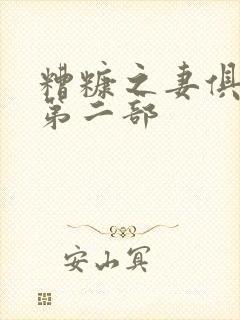 糟糠之妻俱
第二部
安山冥